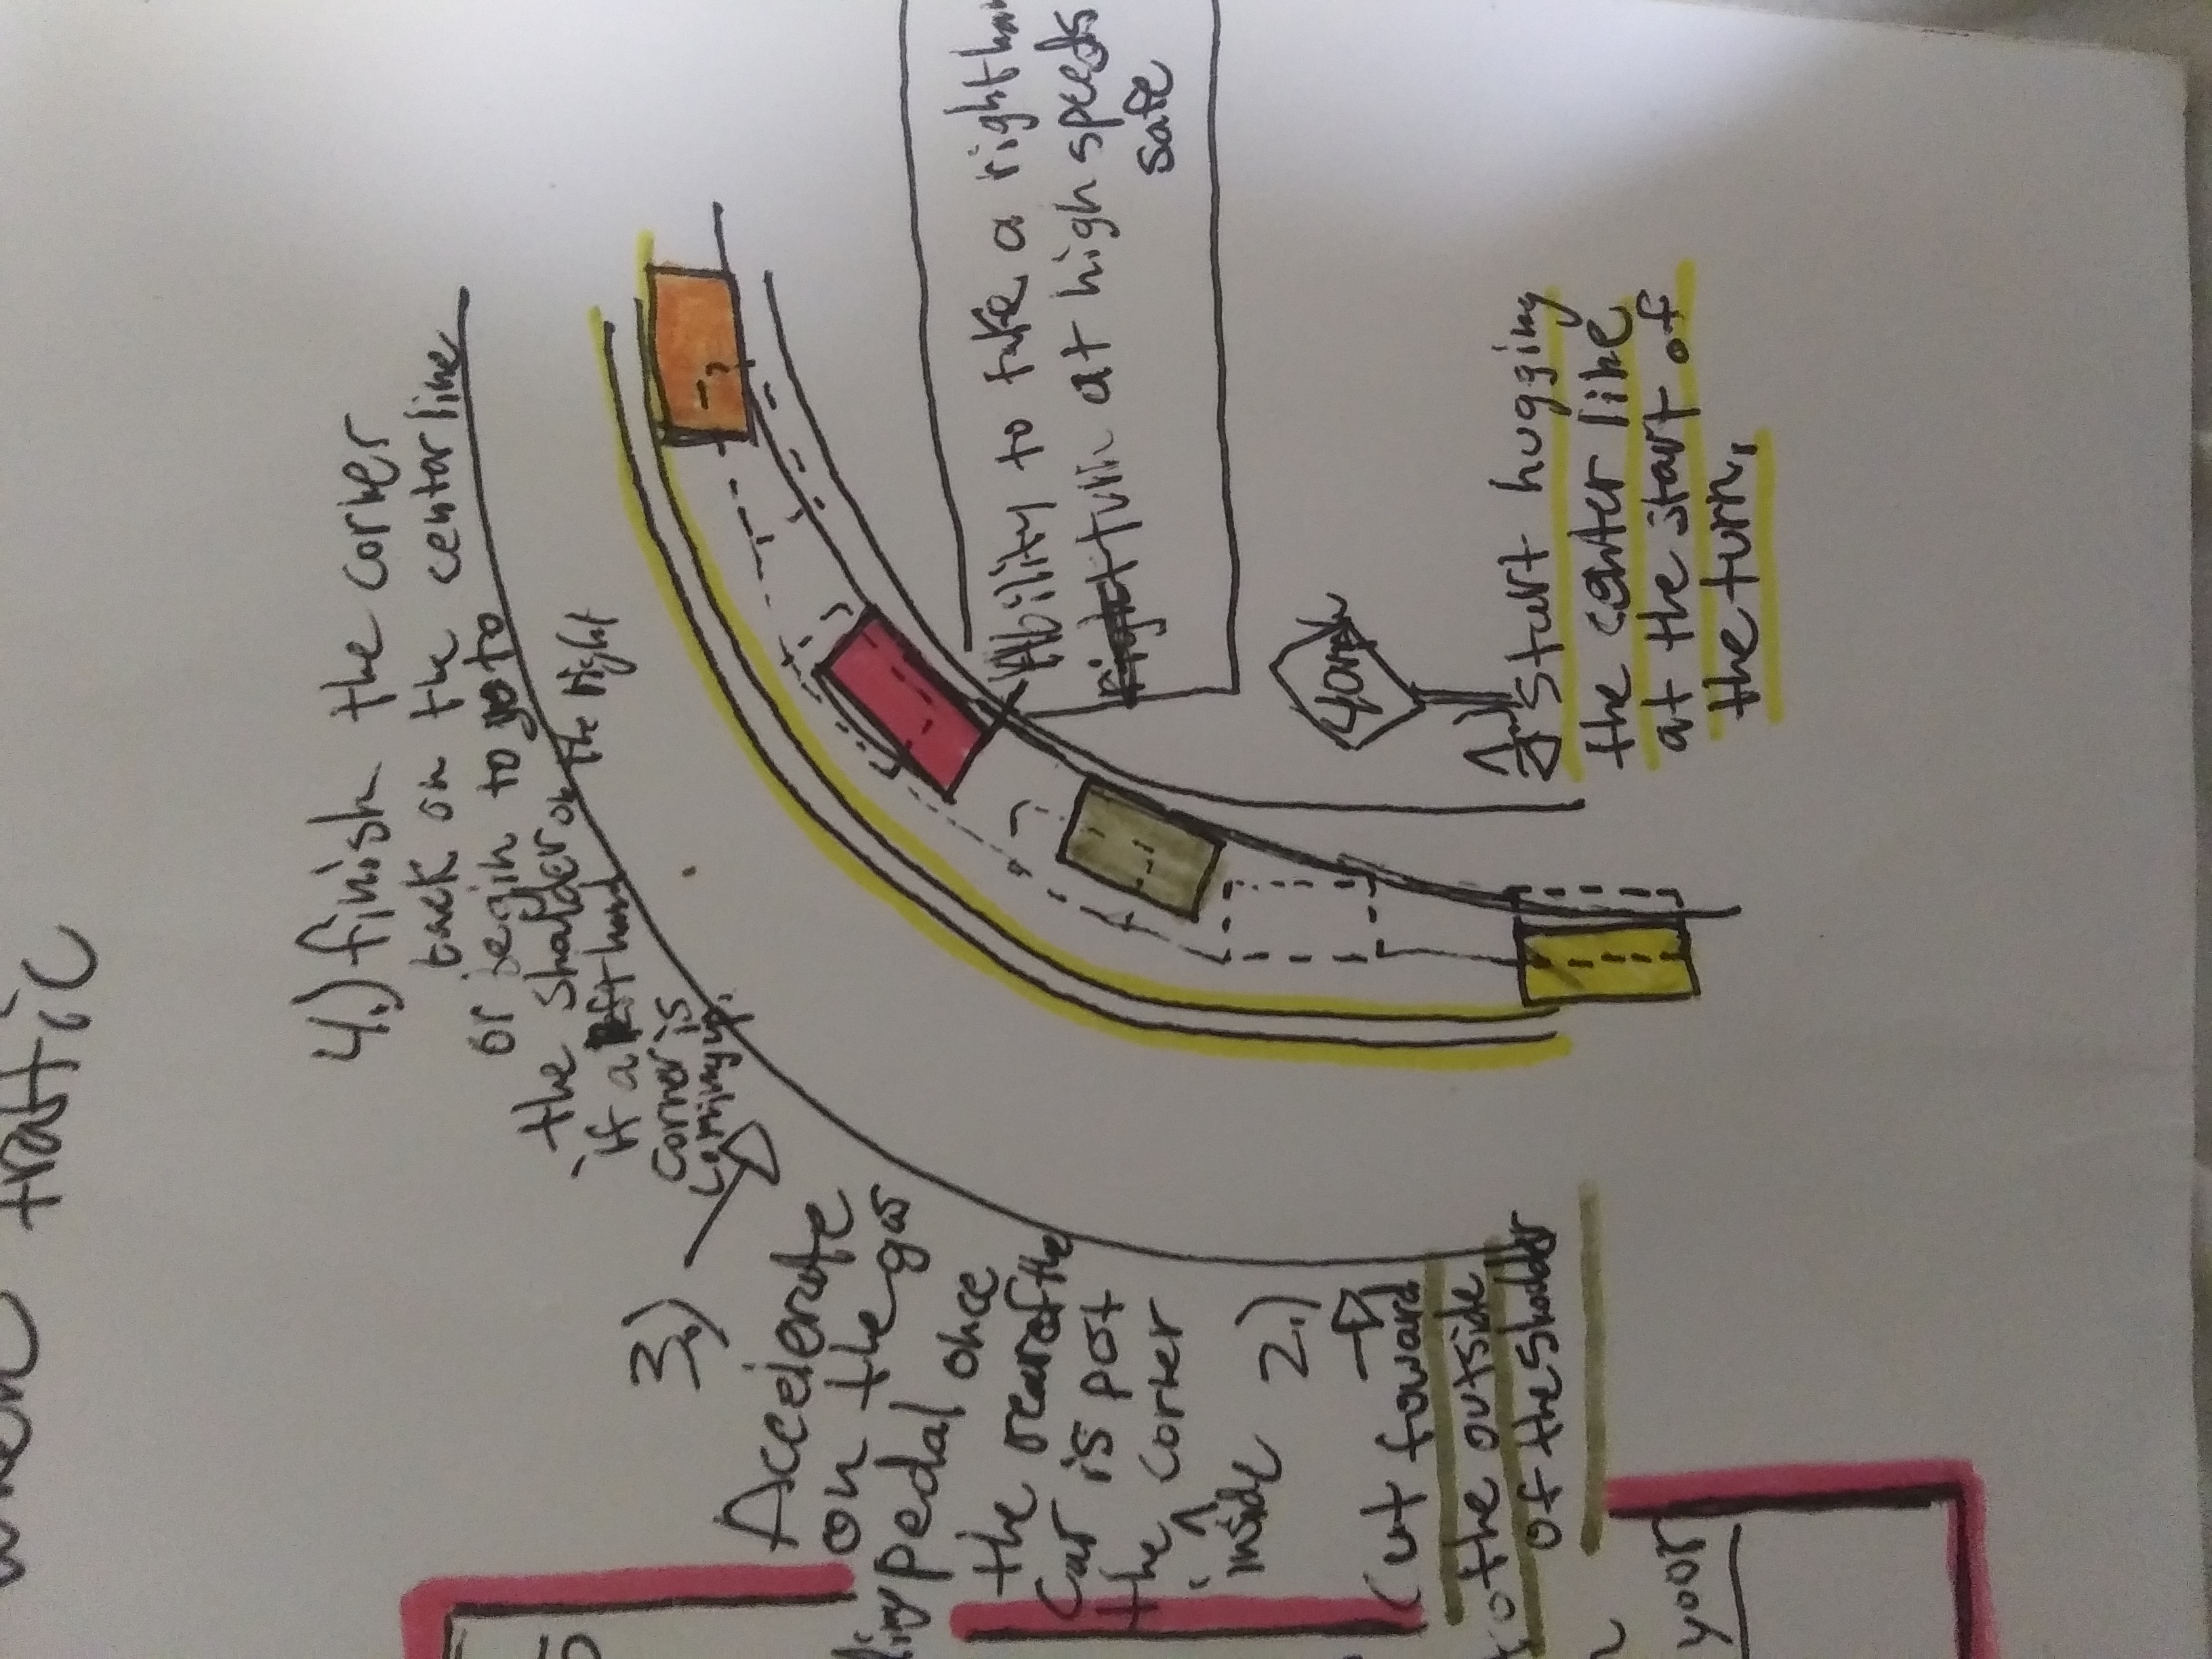 traffic
4.) finish the corner
back on the centarline
or begin to go to
the shoulder on the right
if a left hand
corner is
coming up.
3.)
Accelerate
on the gas
pedal once
the rear of the
car is pot
the corner
inside
2.)
Cut foward
to the outside
of the shoulder
your
Ability to take a right
turn at high speeds
safe
40mph
Start hugging
the center line
at the start of
the turn.